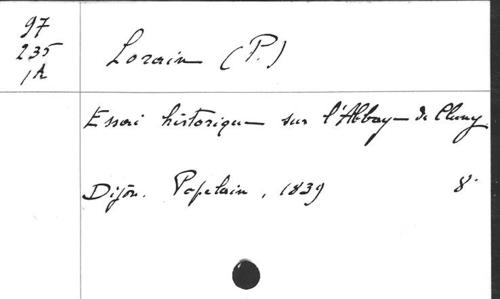 97
235
1A
Lorain (P.)
Essai historique sur l'Abbaye de Cluny
Dijon. Popelain, 1839 8°